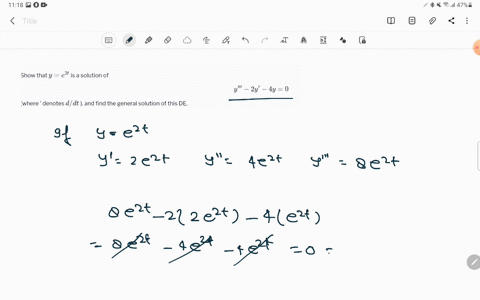 11:18
47%
Title
Show that y = e^{2t} is a solution of
y''' − 2y' − 4y = 0
(where ' denotes d/dt ), and find the general solution of this DE.
If y = e^{2t}
y' = 2e^{2t} y'' = 4e^{2t} y''' = 8e^{2t}
8e^{2t} − 2(2e^{2t}) − 4(e^{2t})
= 8e^{2t} − 4e^{2t} − 4e^{2t} = 0 =